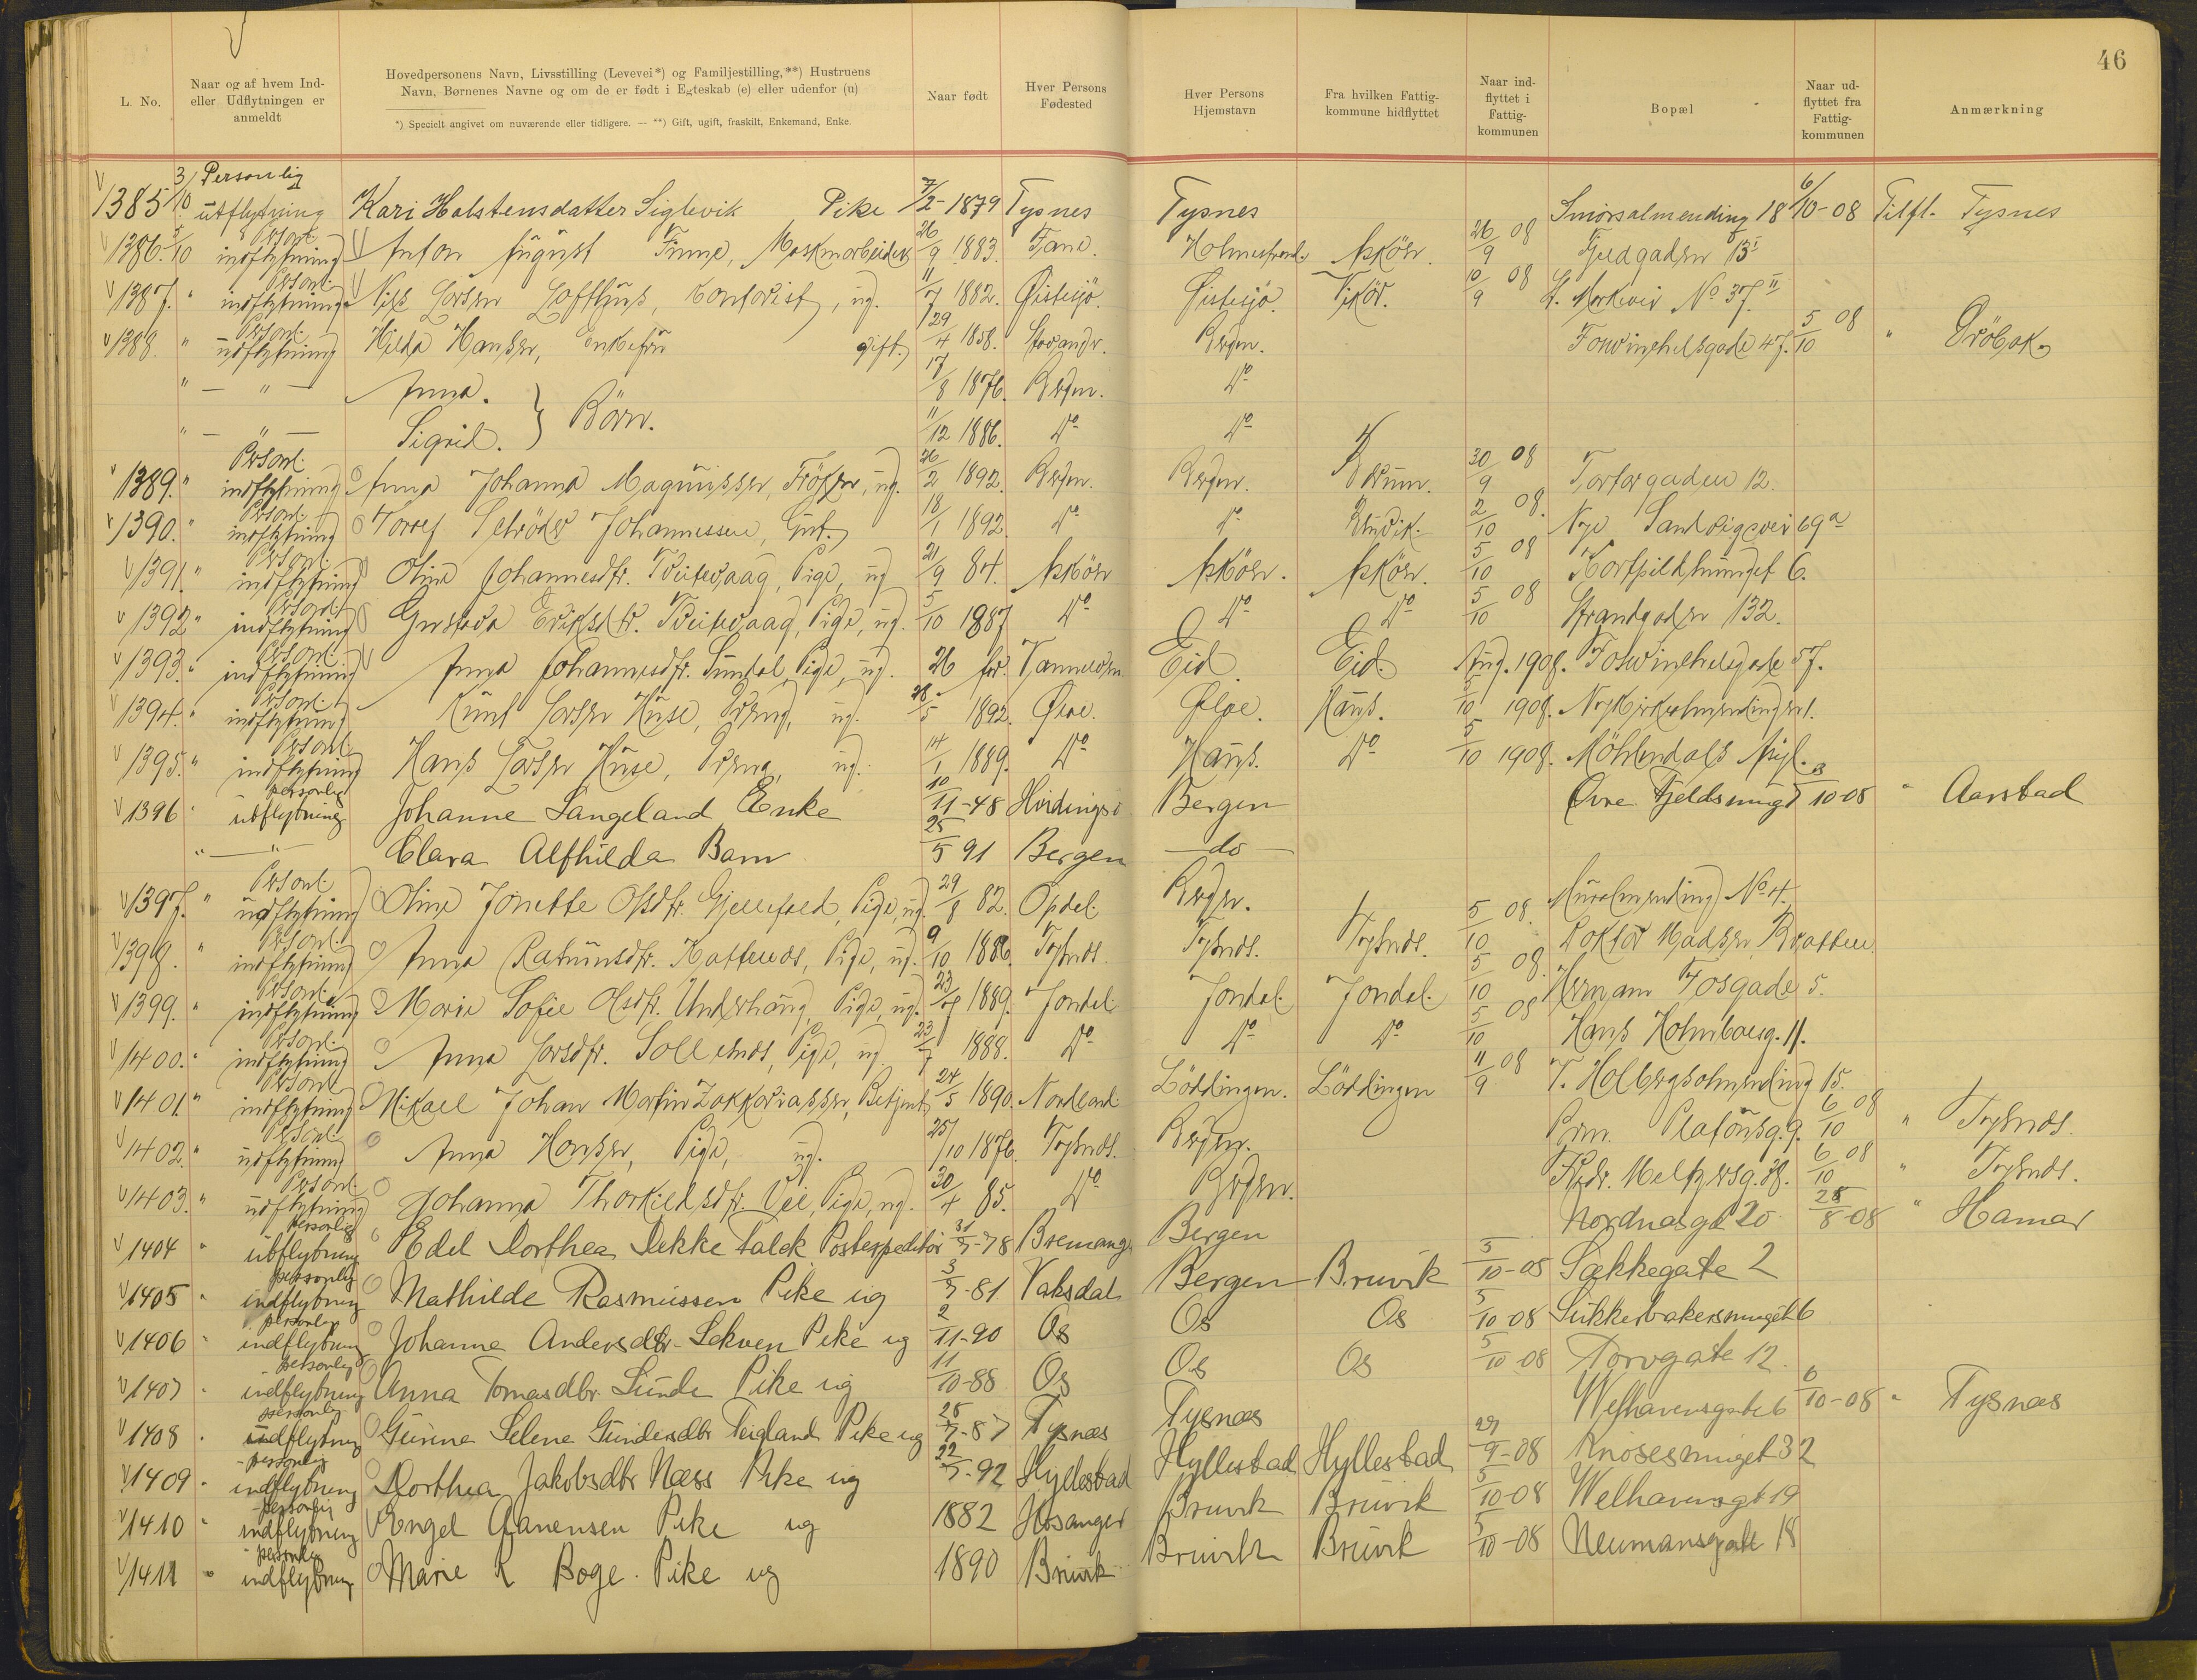 46
L. No.
Naar og af hvem Ind- eller Udflytningen er anmeldt
Hovedpersonens Navn, Livsstilling (Levevei*) og Familjestilling,**) Hustruens Navn, Børnenes Navne og om de er født i Egteskab (e) eller udenfor (u)
*) Specielt angivet om nuværende eller tidligere. — **) Gift, ugift, fraskilt, Enkemand, Enke.
Naar født
Hver Persons Fødested
Hver Persons Hjemstavn
Fra hvilken Fattig-kommune hidflyttet
Naar ind-flyttet i Fattig-kommunen
Bopæl
Naar ud-flyttet fra Fattig-kommunen
Anmærkning
1385 3/10 Personlig utflytning Kari Halstensdatter Siglevik Pike 7/2-1879 Tysnes Tysnes Smørsalmending 18 6/10-08 Tilfl. Tysnes
1386. 5/10 Personl. indflytning Anton August Finne, 26/9 1883. Tane. Holmestrand. Askøen. 26/9 08 Fjeldgaden 15 I
1387. " Personl. indflytning Nils Larsen Lofthus, Kontorist, ug. 11/7 1882. Østesjø. Østesjø. Vikør. 10/9 08 No 37 II
1388. " Personl. udflytning Hilda Hansen, gift. 29/4 1858. Stavanger. Bergen. Foswinchelsgade 47. 5/10 08 " Drøbak
" — " — Anna. } Børn. 17/8 1876. Bergen. Do
" — " — Sigrid. 11/12 1886. Do Do
1389. " Personl. indflytning Anna Johanna Magnussen, Frøken, ug. 26/2 1892. Bergen. Bergen. 30/9 08 Torvgaden 12.
1390. " Personl. indflytning Schrøder Johannessen, Gut. 18/1 1892. Do Do 2/10 08. Nye Sandvigsvei 69 a
1391. " Personl. indflytning Oline Johannesdtr. Tveitevaag, Pige, ug 21/9 84. Askøen Askøen. Askøen. 5/10 08 6.
1392 " Personl. indflytning Gustava Eriksdtr. Tveitevaag, Pige, ug. 5/10 1887 Do Do Do 5/10 08 Strandgaden 132.
1393. " Personl. indflytning Anna Johannesdtr. Sundal, Pige, ug. 26 Eid. Eid. Aug. 1908. Foswinchelsgade 57.
1394. " Personl. indflytning Knut Larsen Huse, Dreng, ug. 28/5 1892. Ølve. Ølve. Haus. 5/10 1908. Nykirkealmendingen 1.
1395. " Personl. indflytning Hans Larsen Huse, Dreng, ug. 14/1 1889. Do Haus. Do 5/10 1908. Møhlendals
1396 " personlig utflytning Johanne Langeland Enke 10/11-48 Hvidingsø Bergen Øvre Fjeldsmug 7 3/10-08 " Aarstad
" — " — Clara Alfhilda Barn 25/5 91 Bergen — do —
1397. " Personl. indflytning Oline Jonette Olsdtr. Gjellefald, Pige, ug. 29/8 82. Opdal. Bergen. Muralmending No 4.
1398. " Personl. indflytning Anna Rasmusdtr. Hattenes, Pige, ug. 9/10 1886. Tysnes. Tysnes. Tysnes. 5/10 08. Doktor Madsen, Bratten
1399. " Personl. indflytning Marie Sofie Olsdtr. Underhaug, Pige, ug. 23/7 1889. Jondal. Jondal. Jondal. 5/10 08. Herman Fosgade 5.
1400. " Personl. indflytning Anna Larsdtr. Sollesnes, Pige, ug 23/7 1888. Do Do Do 5/10 08 Hans Holmboesg. 11.
1401. " Personl. indflytning Mikael Johan Martin Zakkariassen, Betjent 24/5 1890. Nordland. Lødingen. Lødingen 11/9 08 T. Holbergsalmending 15.
1402. " Personl. udflytning Anna Hansen, Pige, ug. 25/10 1876. Tysnes. Bergen. Plafonsg. 9. 6/10 08 " Tysnes.
1403. " Personl. udflytning Johanna Thorkildsdtr. Vee, Pige, ug. 30/4 85. Do Bergen. Fredr. Meltzersg. 6/10 08 " Tysnes.
1404 " personlig utflytning Edel Dorthea Dekke Falck Postexpeditør 31/7-78 Bremanger Bergen Nordnæsgt 20 28/8-08 " Hamar
1405 " personlig indflytning Mathilde Rasmussen Pike ug 3/7-81 Vaksdal Bergen Bruvik 5/10-08 Sækkegate 2
1406 " personlig indflytning Johanne Andersdtr. Lekven Pike ug 2/11-90 Os Os Os 5/10-08 Sukkerbakersmuget 6
1407 " personlig indflytning Anna Tomasdtr Lunde Pike ug 11/10-88 Os Os Os 5/10-08 Torvgate 12.
1408 " personlig utflytning Gurine Selene Gundersdtr Teigland Pike ug 28/7-87 Tysnæs Tysnæs Welhavensgate 6 6/10-08 " Tysnæs
1409 " personlig indflytning Dorthea Jakobsdtr Næss Pike ug 22/7-92 Hyllestad Hyllestad Hyllestad 29/9-08 Knøsesmuget 32
1410 " personlig indflytning Engel Pike ug 1882 Hosanger Bruvik Bruvik 5/10-08 Welhavensgt 19
1411 " personlig indflytning Marie K Boge. Pike ug 1890 Bruvik Bruvik Bruvik 5/10-08 Neumansgate 18